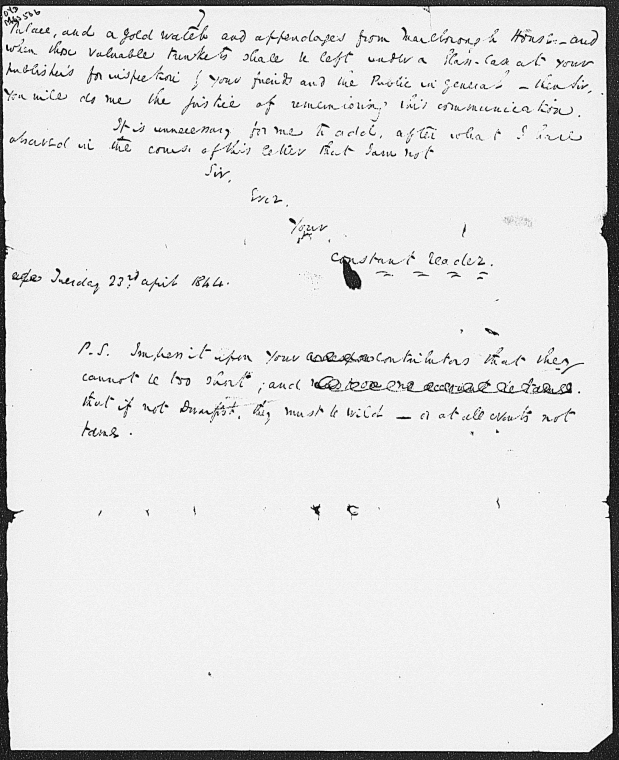 Palace, and a gold watch and appendages from Marlborough House – and
when those valuable trinkets shall be left under a Glass-Case at your
publisher's for inspection by your friends and the Public in general – then Sir,
you will do me the justice of remembering this communication.
It is unnecessary for me to add, after what I have
observed in the course of this letter that I am not
Sir,
Ever.
Your
Constant reader.
Tuesday 23rd April 1844.
P.S. Impress it upon your contributors that they
cannot be too short; and
that if not they must be wild – or at all events not
tame.